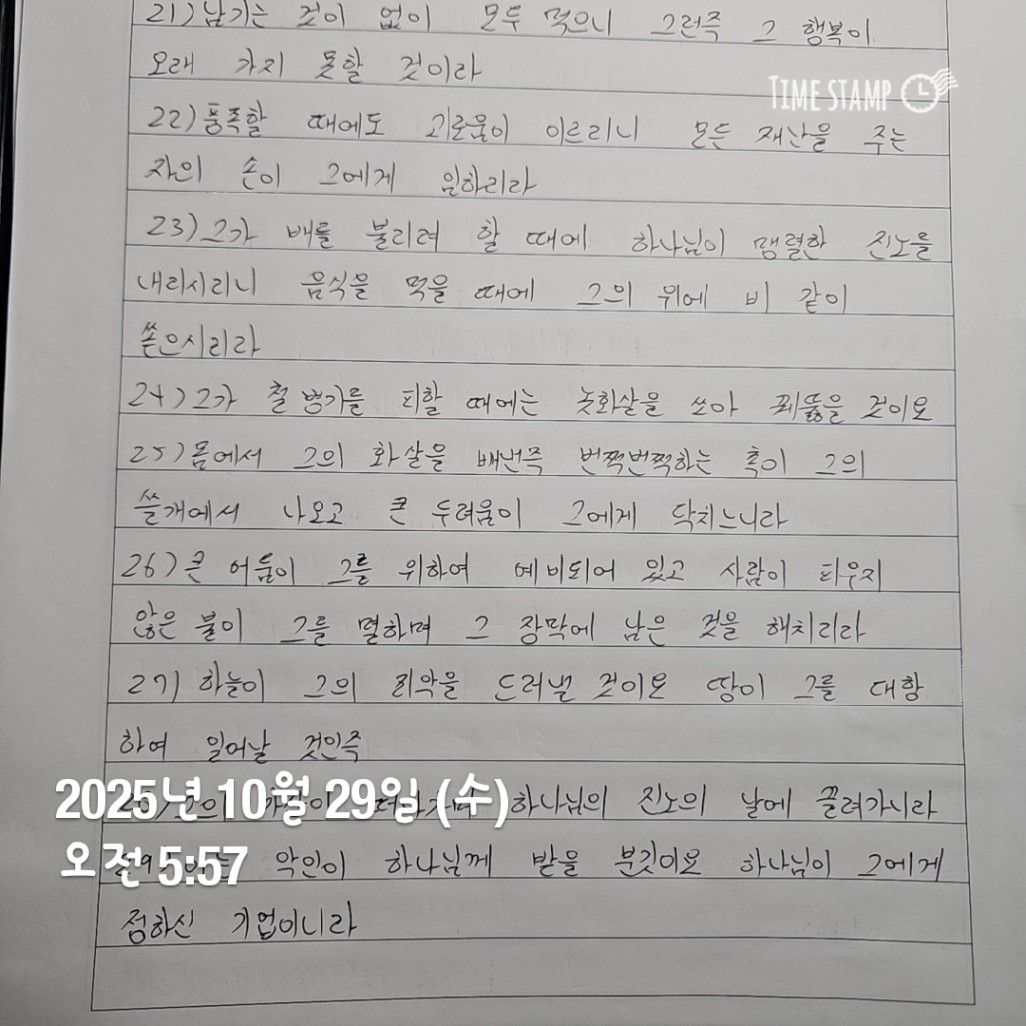 21) 남기는 것이 없이 모두 먹으니 그런즉 그 행복이
오래 가지 못할 것이라
TIME STAMP
22) 풍족할 때에도 괴로움이 이르리니 모든 재난을 주는
자의 손이 그에게 임하리라
23) 그가 배를 불리려 할 때에 하나님이 맹렬한 진노를
내리시리니 음식을 먹을 때에 그의 위에 비 같이
쏟으시리라
24) 그가 철 병기를 피할 때에는 놋화살을 쏘아 꿰뚫을 것이요
25) 몸에서 그의 화살을 빼낸즉 번쩍번쩍하는 촉이 그의
쓸개에서 나오고 큰 두려움이 그에게 닥치느니라
26) 큰 어둠이 그를 위하여 예비되어 있고 사람이 피우지
않은 불이 그를 멸하며 그 장막에 남은 것을 해치리라
27) 하늘이 그의 죄악을 드러낼 것이요 땅이 그를 대항
하여 일어날 것인즉
2025년 10월 29일 (수)
그의 하나님의 진노의 날에 끌려가리라
오전 5:57
악인이 하나님께 받을 분깃이요 하나님이 그에게
정하신 기업이니라